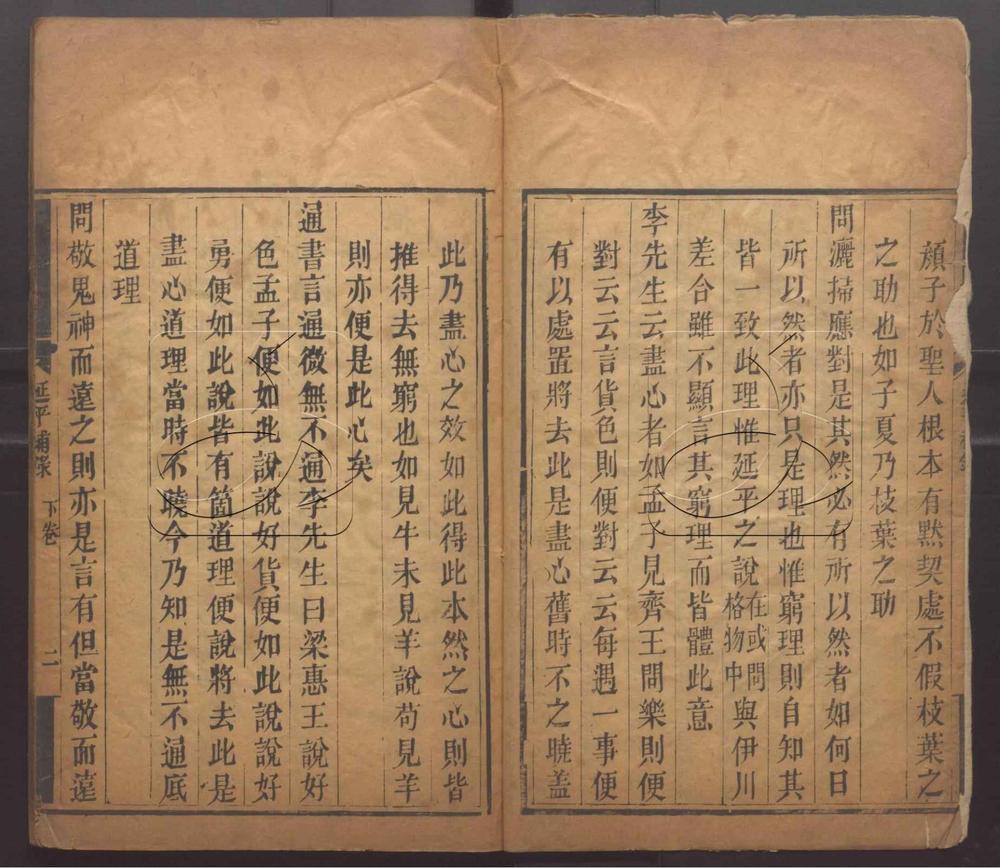 顔子於聖人根本有黙契處不假枝葉之
之助也如子夏乃枝葉之助
問灑掃應對是其然必有所以然者如何曰
所以然者亦只是理也惟窮理則自知其
皆一致此理惟延平之說在或問格物中與伊川
差合雖不顯言其窮理而皆體此意
李先生云盡心者如孟子見齊王問樂則便
對云云言貨色則便對云云每遇一事便
有以處置將去此是盡心舊時不之曉盖
此乃盡心之效如此得此本然之心則皆
推得去無窮也如見牛未見羊說苟見羊
則亦便是此心矣
通書言通微無不通李先生曰梁惠王說好
色孟子便如此說說好貨便如此說說好
勇便如此說皆有箇道理便說將去此是
盡心道理當時不曉今乃知是無不通底
道理
問敬鬼神而遠之則亦是言有但當敬而遠
延平補錄 下卷 二